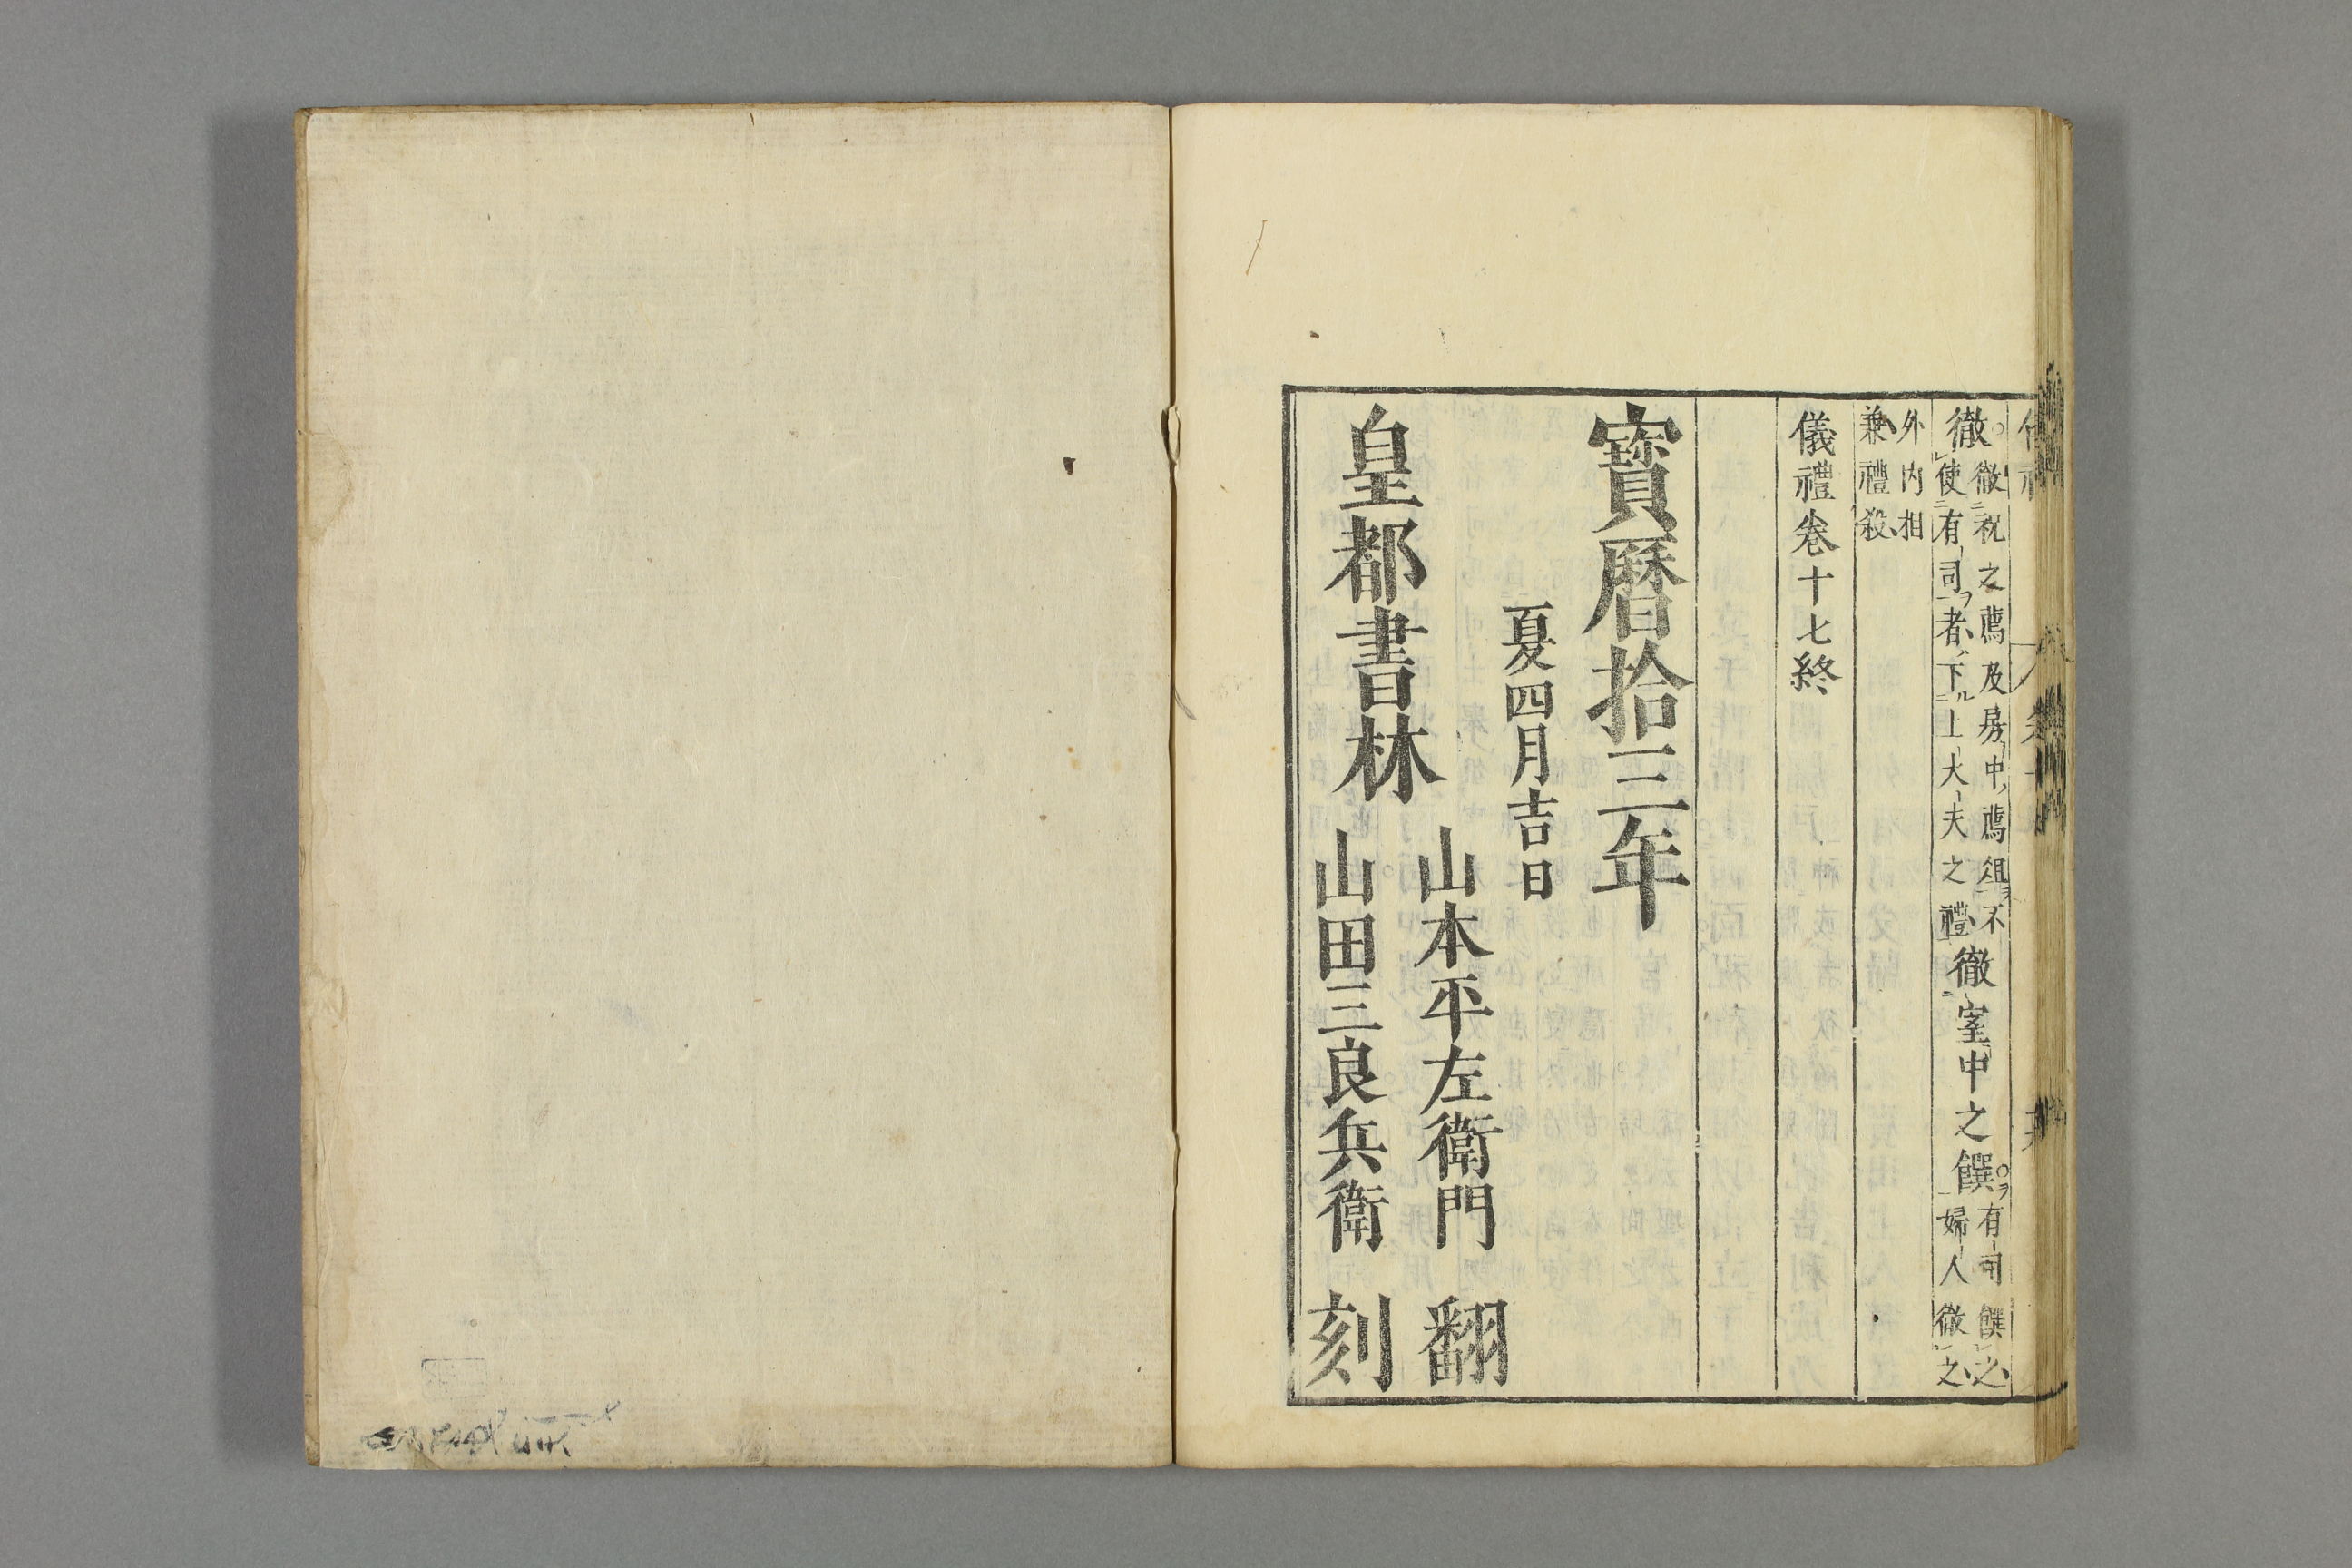 徹徹祝之薦及房中薦俎不
使有司者下上大夫之禮徹室中之饌有司饌之
婦人徹之
外内相
兼禮殺
儀禮卷十七終
寶曆拾三年
夏四月吉日
皇都書林
山本平左衛門 翻
山田三良兵衛 刻